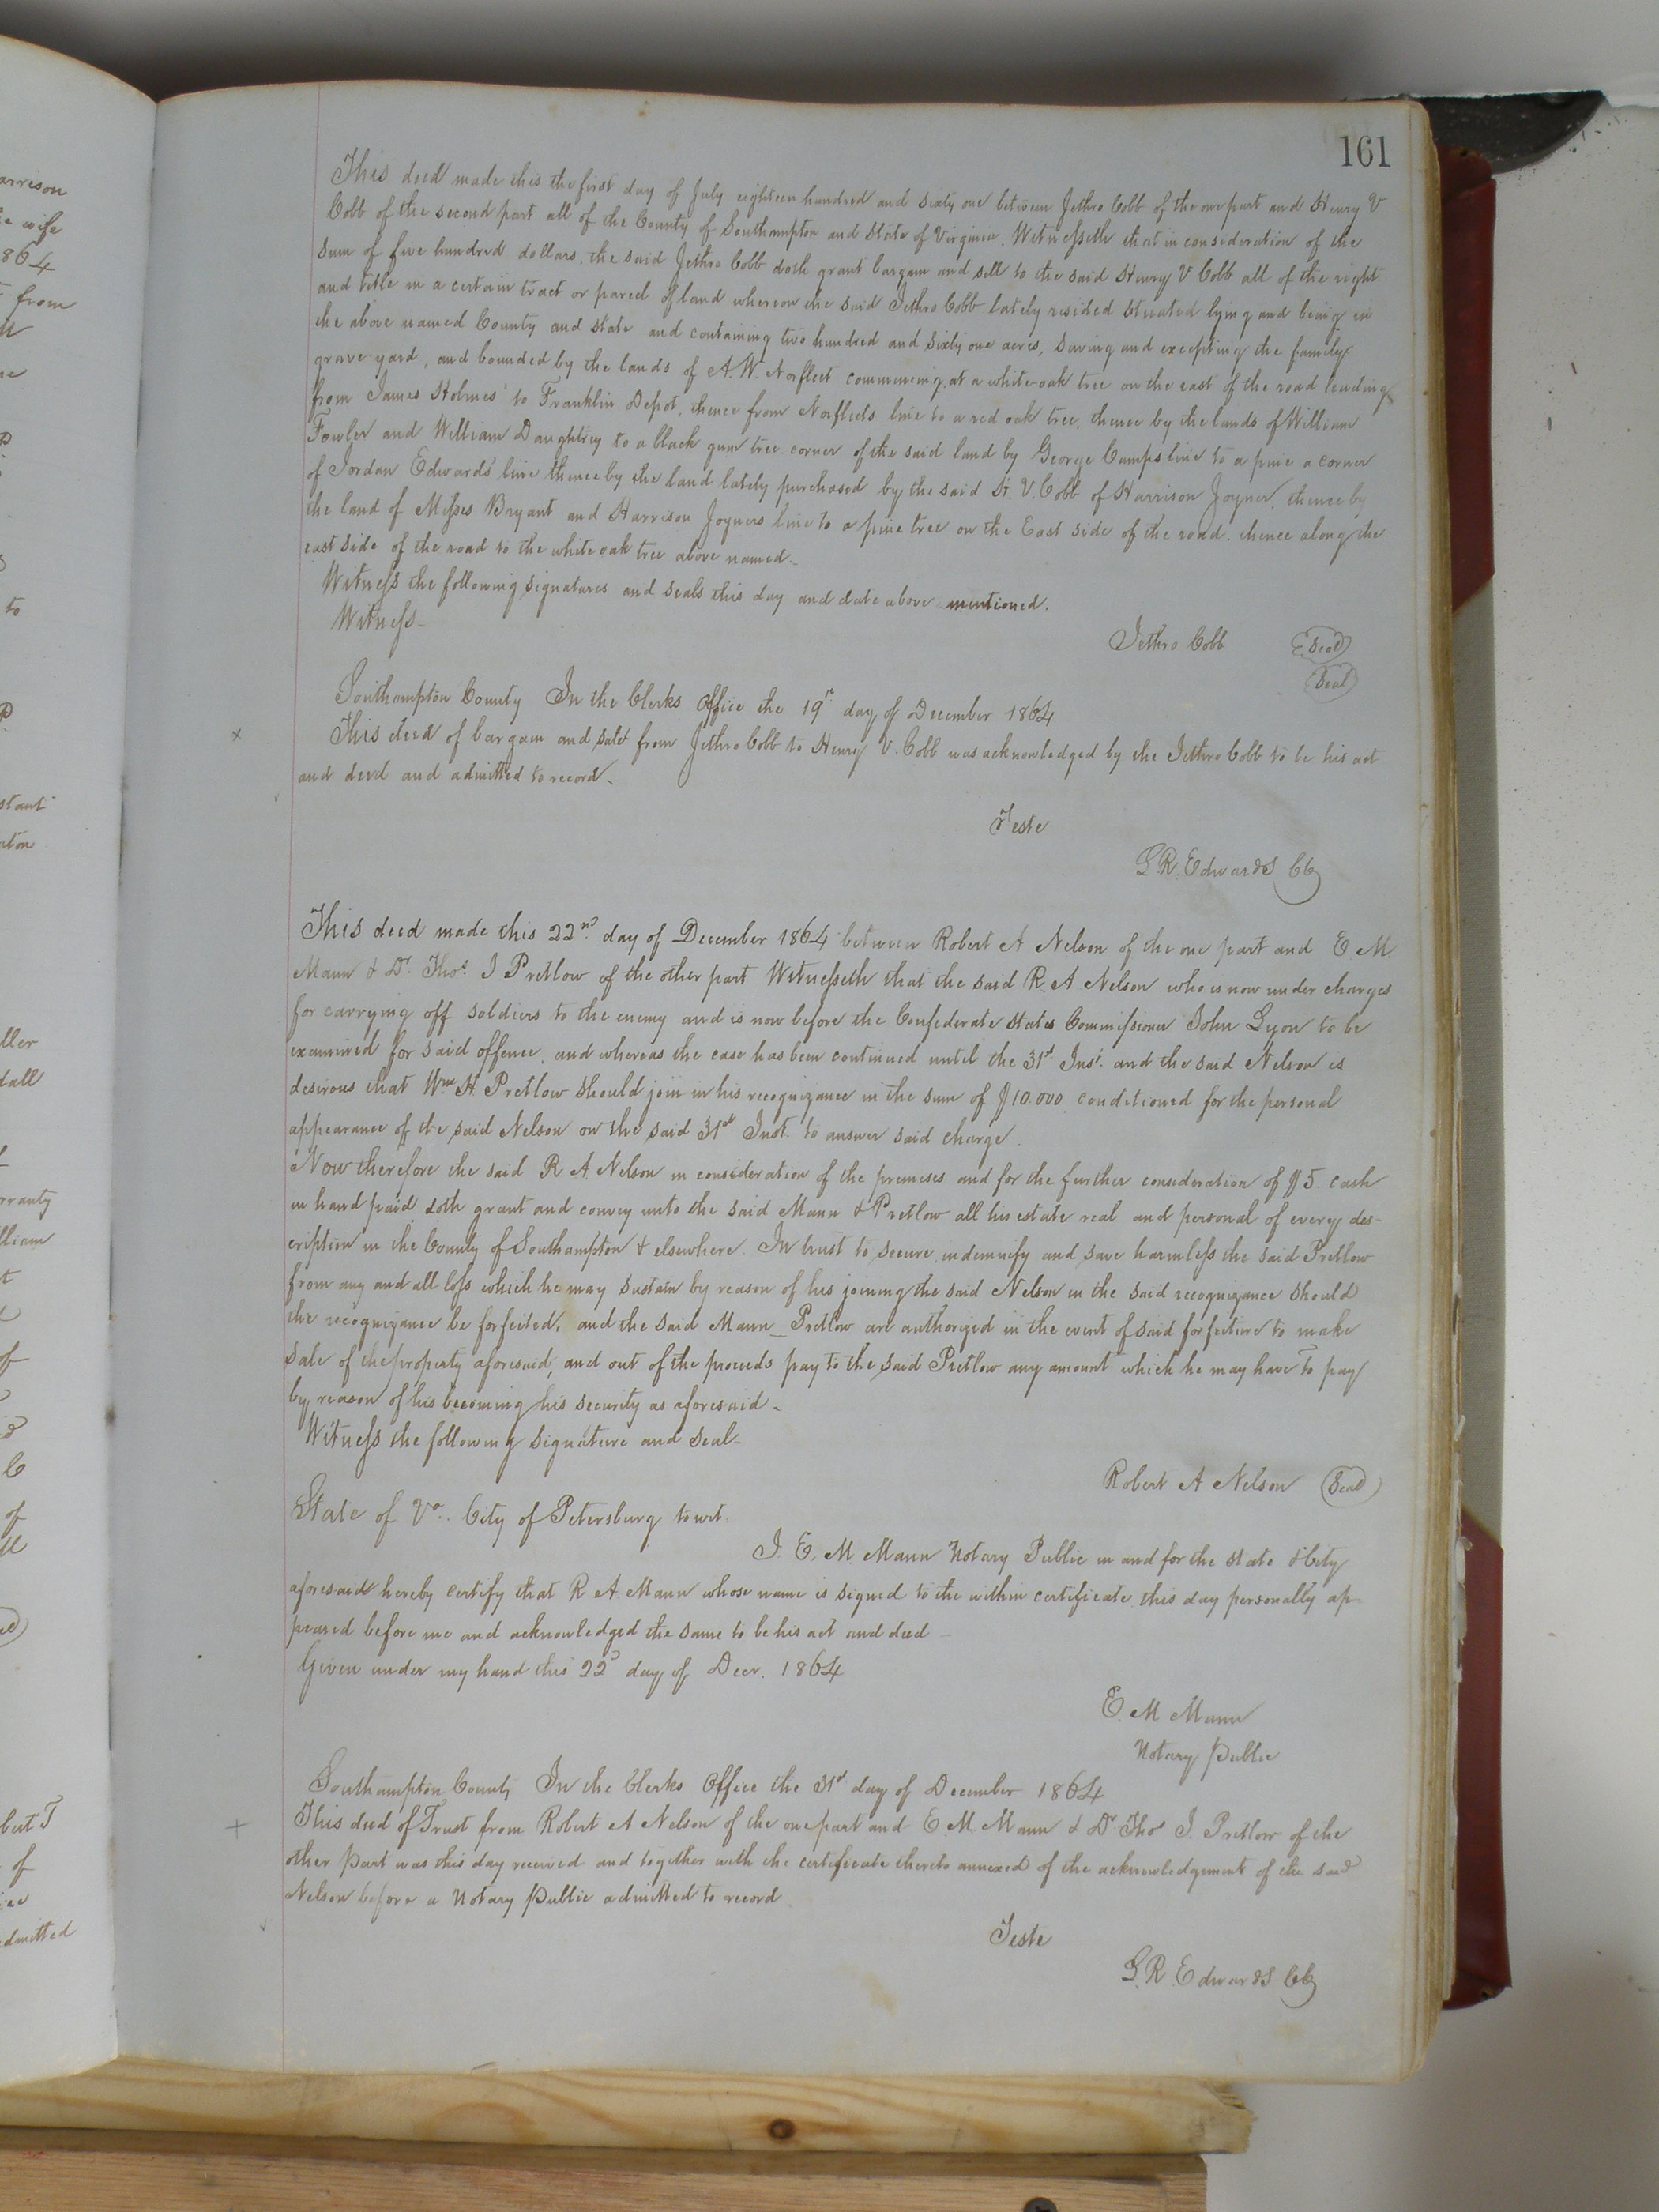 161
This deed made this the first day of July eighteen hundred and sixty one between Jethro Cobb of the one part and Henry V
Cobb of the second part all of the County of Southampton and State of Virginia. Witnesseth that in consideration of the
sum of five hundred dollars, the said Jethro Cobb doth grant bargain and sell to the said Henry V Cobb all of the right
and title in a certain tract or parcel of land whereon the said Jethro Cobb lately resided Situated lying and being in
the above named County and State and containing two hundred and Sixty one acres, Saving and excepting the family
grave yard, and bounded by the lands of A. W. Norfleet commencing at a white-oak tree on the east of the road leading
from James Holmes' to Franklin Depot, thence from Norfleets line to a red oak tree, thence by the lands of William
Fowler and William Daughtrey to a black gum tree corner of the said land by George Camps line to a pine a corner
of Jordan Edwards' line thence by the land lately purchased by the said H. V. Cobb of Harrison Joyner, thence by
the land of Misses Bryant and Harrison Joyners line to a pine tree on the East side of the road. thence along the
east side of the road to the white oak tree above named.
Witness the following signatures and seals this day and date above mentioned.
Witness
Jethro Cobb Seal
Seal
Southampton County In the Clerks Office the 19th day of December 1864
This deed of bargain and sale from Jethro Cobb to Henry V. Cobb was acknowledged by the Jethro Cobb to be his act
and deed and admitted to record.
Teste
L R. Edwards CC
This deed made this 22nd day of December 1864 between Robert A Nelson of the one part and E M.
Mann & Dr. Thos. J Pretlow of the other part Witnesseth that the said R. A Nelson who is now under charges
for carrying off soldiers to the enemy and is now before the Confederate States Commissioner John Lyon to be
examined for said offence, and whereas the case has been continued until the 31st Inst. and the said Nelson is
desirous that Wm H. Pretlow should join in his recognizance in the sum of $10.000 conditioned for the personal
appearance of the said Nelson on the said 31st Inst. to answer said charge.
Now therefore the said R A. Nelson in consideration of the premises and for the further consideration of $5. cash
in hand paid doth grant and convey unto the said Mann & Pretlow all his estate real and personal of every des-
cription in the County of Southampton & elsewhere. In trust to secure indemnify and save harmless the said Pretlow
from any and all loss which he may sustain by reason of his joining the said Nelson in the said recognizance Should
the recognizance be forfeited, and the said Mann _ Pretlow are authorized in the event of said forfeiture to make
Sale of the property aforesaid, and out of the proceeds pay to the said Pretlow any amount which he may have to pay
by reason of his becoming his security as aforesaid.
Witness the following signature and seal
Robert A Nelson Seal
State of Va. City of Petersburg towit.
I. E. M Mann Notary Public in and for the State & City
aforesaid hereby certify that R A. Mann whose name is signed to the within certificate this day personally ap-
peared before me and acknowledged the same to be his act and deed
Given under my hand this 22d day of Decr. 1864
E. M Mann
Notary Public
Southampton County In the Clerks Office the 31st day of December 1864
This deed of Trust from Robert A Nelson of the one part and E. M. Mann & Dr Thos J. Pretlow of the
other Part was this day received and together with the certificate thereto annexed of the acknowledgement of the said
Nelson before a Notary Public admitted to record.
Teste
L. R. Edwards CC